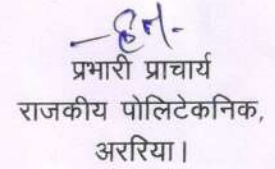 प्रभारी प्राचार्य
राजकीय पोलिटेकनिक,
अररिया।